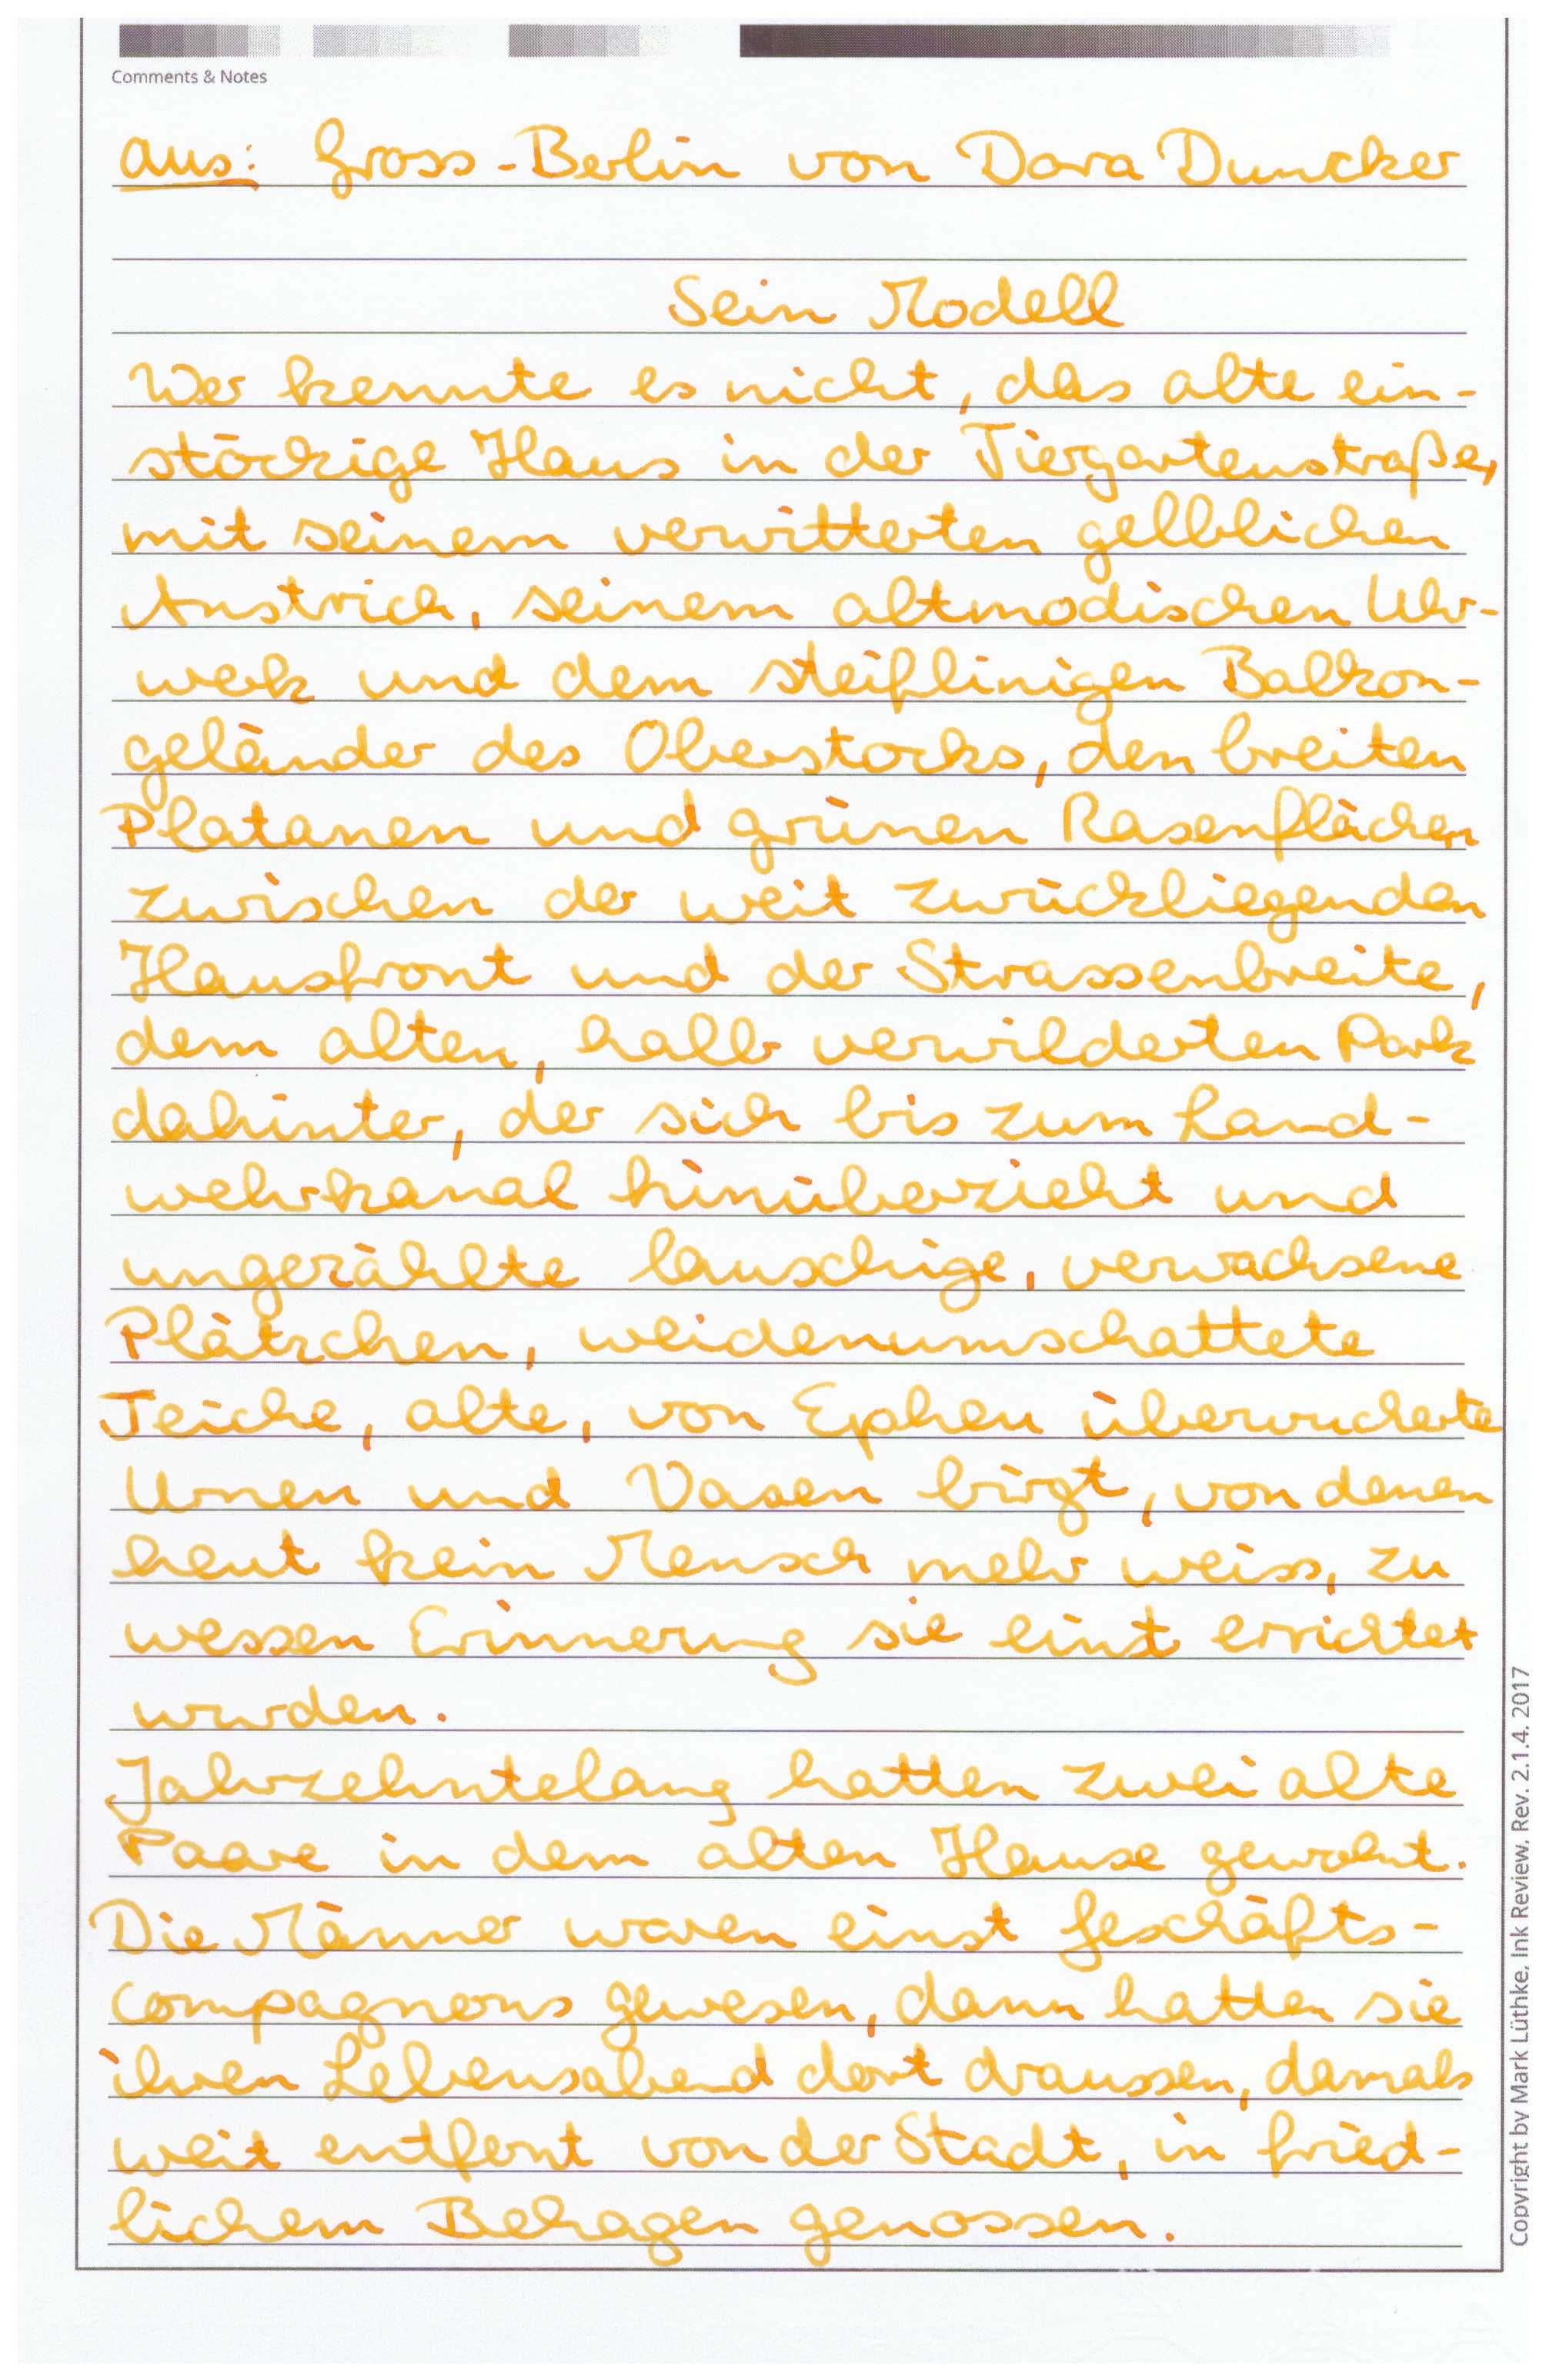 Comments & Notes
aus: Gross-Berlin von Dora Duncker
Sein Modell
Wer kennte es nicht, das alte ein-
stöckige Haus in der Tiergartenstraße,
mit seinem verwitterten gelblichen
Anstrich, seinem altmodischen Uhr-
werk und dem steiflinigen Balkon-
geländer des Oberstocks, den breiten
Platanen und grünen Rasenflächen
zwischen der weit zurückliegenden
Hausfront und der Strassenbreite,
dem alten, halb verwilderten Park
dahinter, der sich bis zum Land-
wehrkanal hinüberzieht und
ungezählte lauschige, verwachsene
Plätzchen, weidenumschattete
Teiche, alte, von Epheu überwucherte
Urnen und Vasen birgt, von denen
heut kein Mensch mehr weiss, zu
wessen Erinnerung sie einst errichtet
wurden.
Jahrzehntelang hatten zwei alte
Paare in dem alten Hause gewohnt.
Die Männer waren einst Geschäfts-
compagnons gewesen, dann hatten sie
ihren Lebensabend dort draussen, damals
weit entfernt von der Stadt, in fried-
lichem Behagen genossen.
Copyright by Mark Lüthke, Ink Review, Rev. 2.1.4. 2017